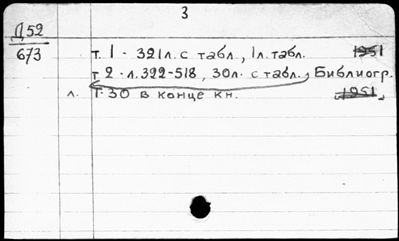 3
Д52
673
т. 1 - 321л. с табл., 1л. табл. 1951
т 2 - л. 322-518, 30л. с табл., Библиогр.
л. 1-30 в конце кн. 1951